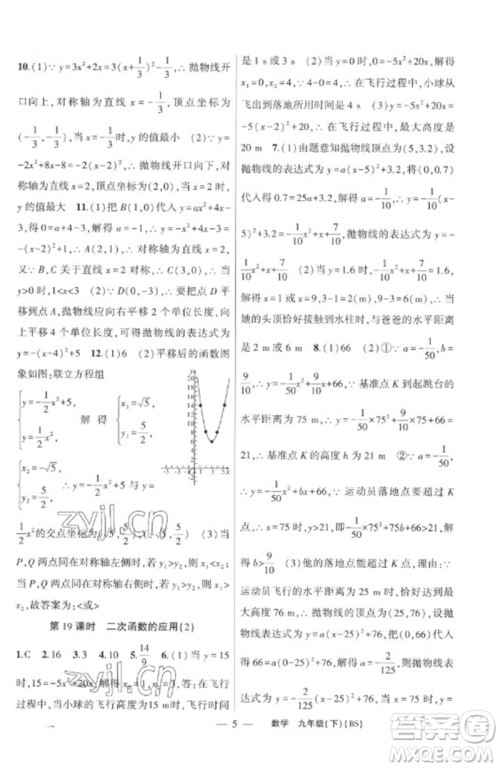 10.(1)∵y=3x²+2x=3(x+1/3)²-1/3,∴抛物线开
口向上,对称轴为直线 x=-1/3,顶点坐标为
(-1/3,-1/3),当 x=-1/3时,y的值最小 (2)∵y=
-2x²+8x-8=-2(x-2)²,∴抛物线开口向下,对
称轴为直线x=2,顶点坐标为(2,0),当 x=2 时,
y的值最大 11.(1)把 B(1,0)代入 y=ax²+4x-3,
得 0=a+4-3,解得 a=-1,∴y=-x²+4x-3=
-(x-2)²+1,∴A(2,1).∵抛物线的对称轴为直
线x=2,B,C关于直线 x=2 对称,∴C(3,0),∴当
y>0时,1<x<3 (2)∵D(0,-3),∴要把点 D 平
移到点A,抛物线应向右平移 2 个单位长度,再向
上平移 4 个单位长度,可得抛物线的表达式为
y=-(x-4)²+5 12.(1)6 (2)平移后的函数图
象如图;联立方程组
y=-1/2x²+5, 解 得 x₁=√5, y₁=5/2,
∴ y=-1/2x²+5 与 y=
1/2x² 的交点坐标为(√5,5/2),(-√5,5/2) (3)当点
P,Q 两点同在对称轴左侧时,若 y₁>y₂,则 x₁<
x₂,当 P,Q 两点同在对称轴右侧时,若 y₁>y₂,则
x₁>x₂,故答案为:<或>
第 19 课时 二次函数的应用(2)
1.C 2.16 3.2 4.16 5.14/9 6.(1)当 y=15
时,15=-5x²+20x,解得 x₁=1,x₂=3,答:在飞行过
程中,当小球的飞行高度为 15 m 时,飞行的时间
是 1 s 或 3 s (2)当 y=0 时,0=-5x²+20x,解得
x₁=0,x₂=4.∵4-0=4,∴在飞行过程中,小球从
飞出到落地所用时间是 4 s (3)y=-5x²+20x=
-5(x-2)²+20,∴当 x=2 时,y 取得最大值,此
时,y=20.答:在飞行过程中,最大高度是
20 m 7.(1)由题意知抛物线顶点为(5,3.2),设抛
物线的表达式为 y=a(x-5)²+3.2,将(0,0.7)
代入得 0.7=25a+3.2,解得 a=-1/10,∴y=
-1/10(x-5)²+3.2=-1/10x²+x+7/10,∴抛物线的表达式为
y=-1/10x²+x+7/10 (2)当 y=1.6 时,-1/10x²+x+7/10=
1.6,解得 x=1 或 x=9,
m 8.(1)66 (2)①∵a=-1/50,
b=9/10,∴y=-1/50x²+9/10x+66,∵基准点 K 到起跳台的
水平距离为 75 m,∴y=-1/50×75²+9/10×75+66=
21,∴基准点 K 的高度 h 为 21 m ②∵a=-1/50,
∴y=-1/50x²+bx+66,∵运动员落地点要超过 K
点,∴当 x=75 时,y>21,即-1/50×75²+75b+66>21,解
得 b>9/10 (3)他的落地点能超过 K 点,理由如下:∵
运动员飞行的水平距离为 25 m 时,恰好达到最大
高度76 m,∴抛物线的顶点为(25,76),设抛物线
的表达式为 y=a(x-25)²+76,把(0,66)代入
得66=a(0-25)²+76,解得 a=-2/125,∴抛物线的
表达式为 y=-2/125(x-25)²+76,当 x=75 时,y=
— 5 — 数学 九年级(下)(BS)
zyjl.cn